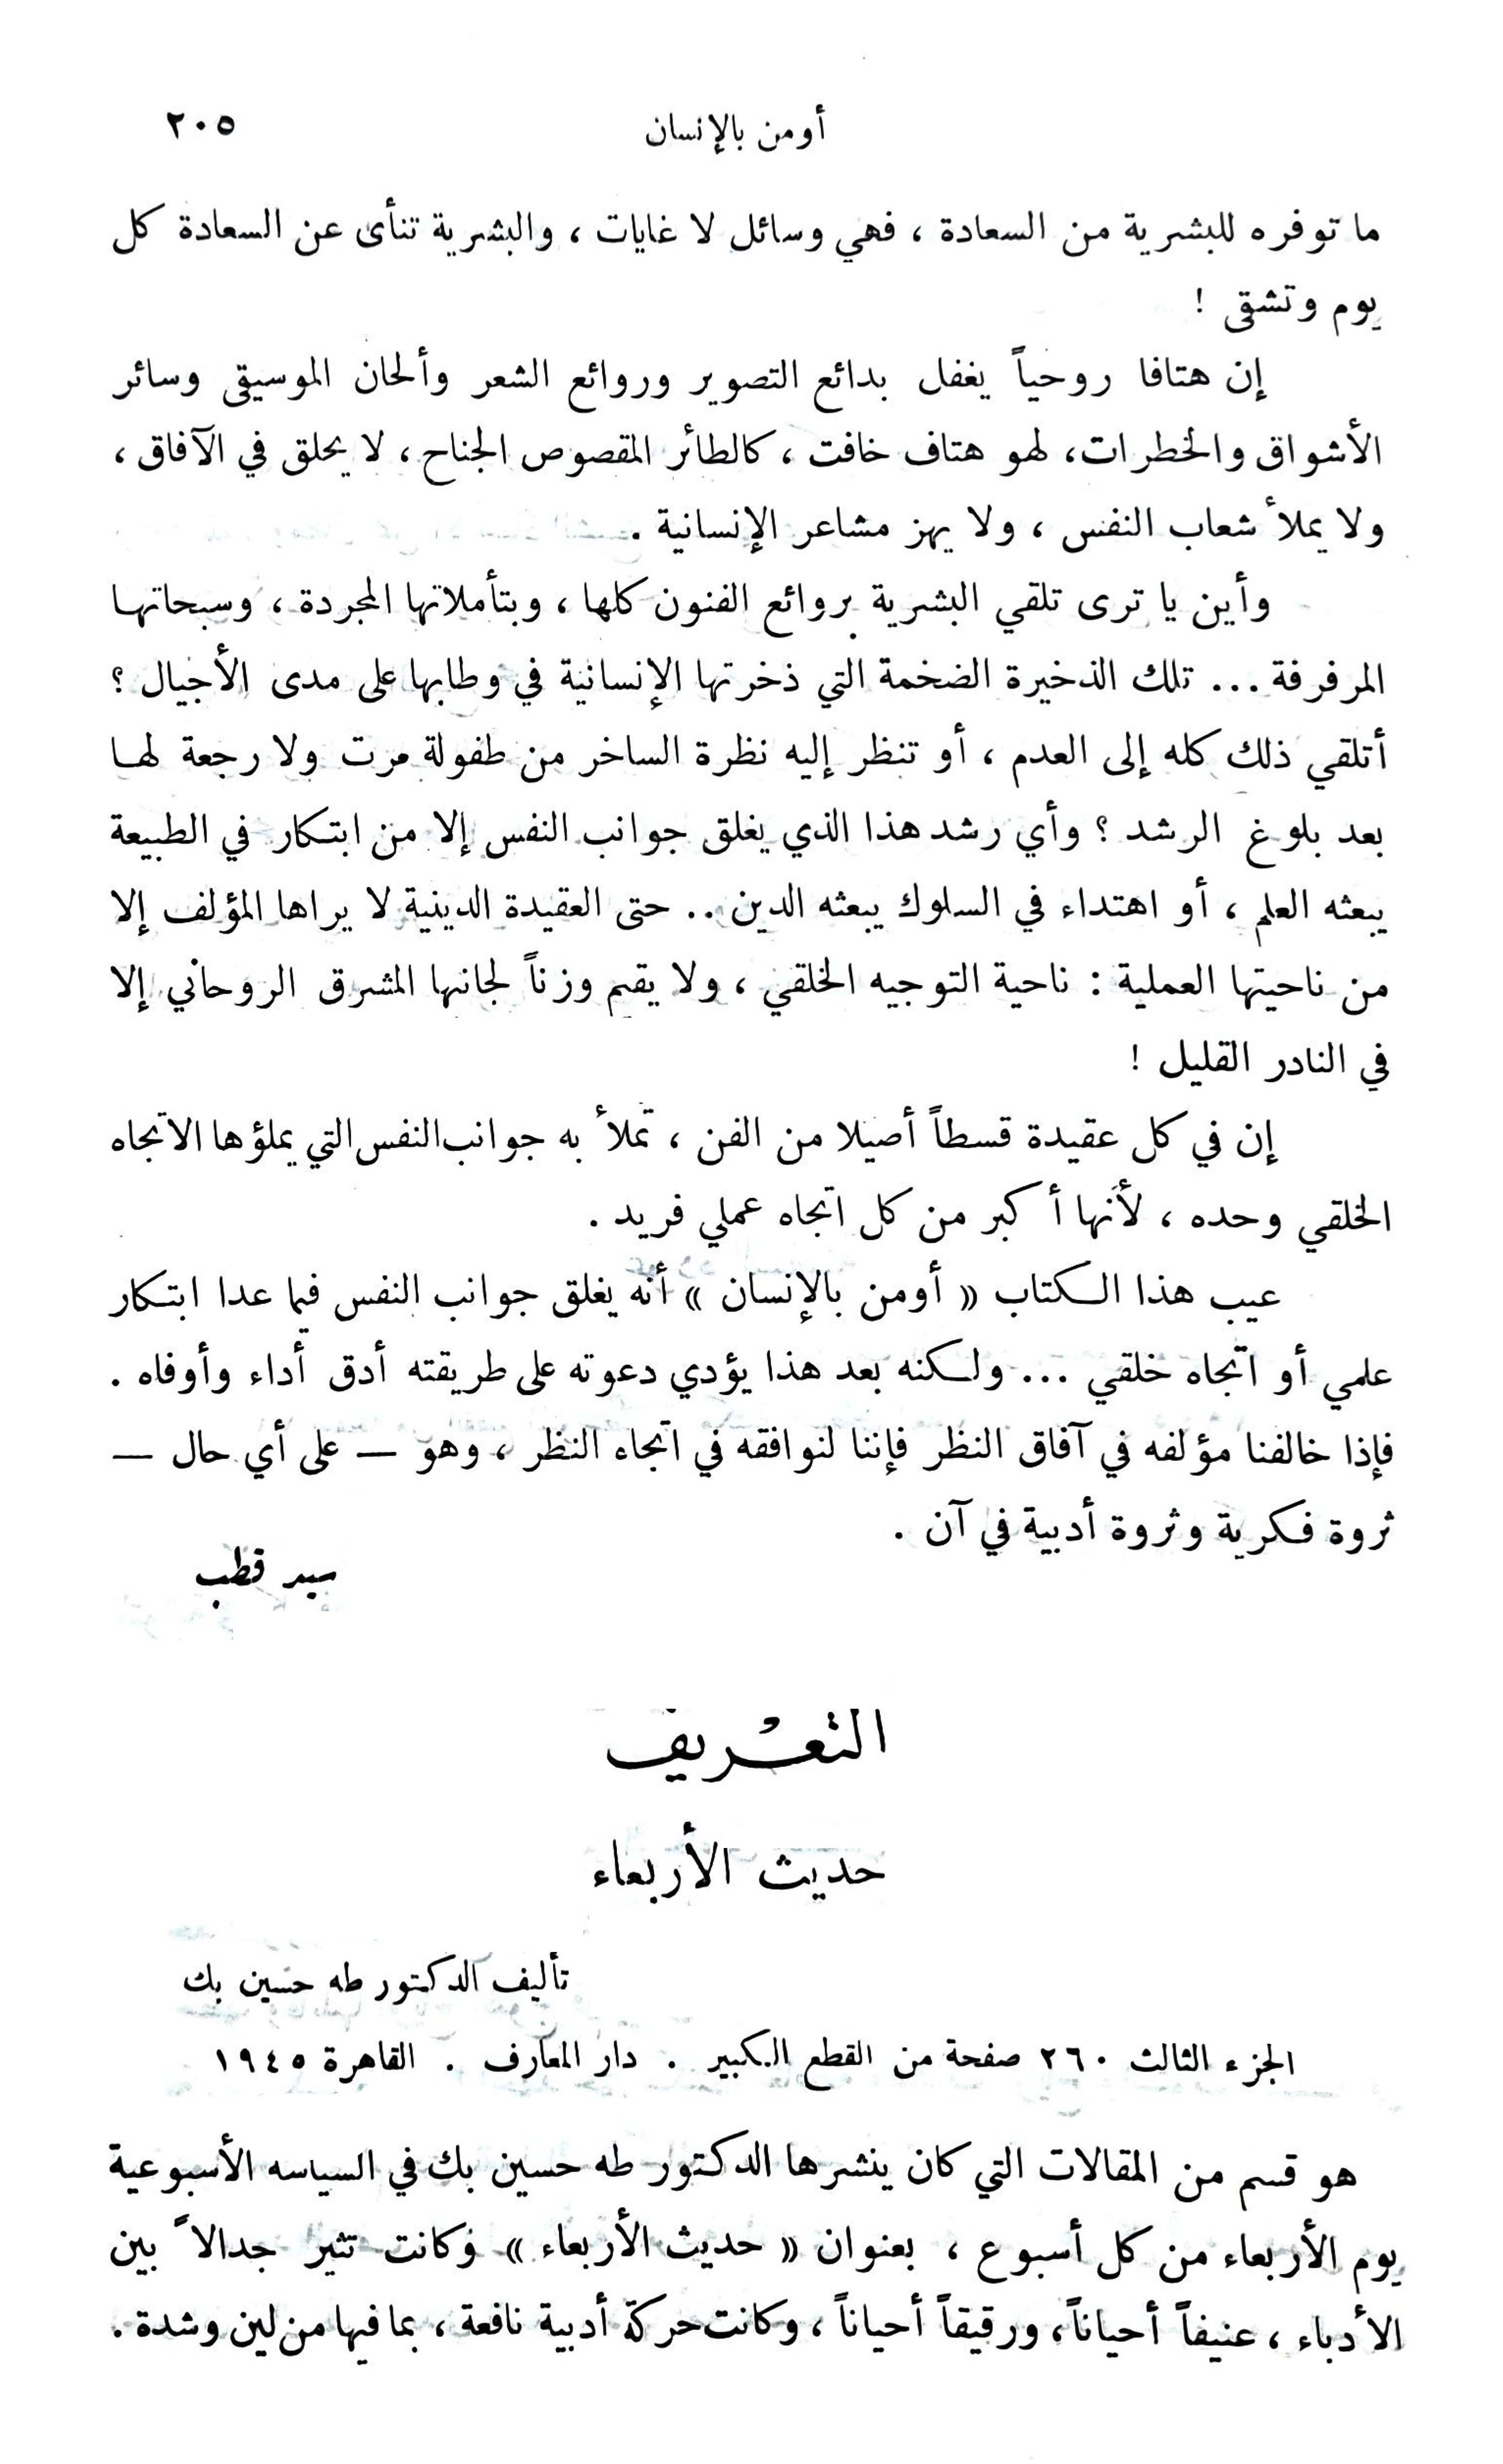 أومن بالإنسان ٢٠٥
ما توفره للبشرية من السعادة ، فهي وسائل لا غايات ، والبشرية تنأى عن السعادة كل
يوم وتشقى !
إن هتافا روحياً يغفل بدائع التصوير وروائع الشعر وألحان الموسيقى وسائر
الأشواق والخطرات، لهو هتاف خافت ، كالطائر المقصوص الجناح ، لا يحلق في الآفاق ،
ولا يملأ شعاب النفس ، ولا يهز مشاعر الإنسانية .
وأين يا ترى تلقي البشرية بروائع الفنون كلها ، وبتأملاتها المجردة ، وسبحاتها
المرفرفة ... تلك الذخيرة الضخمة التي ذخرتها الإنسانية في وطابها على مدى الأجيال ؟
أتلقي ذلك كله إلى العدم ، أو تنظر إليه نظرة الساخر من طفولة مرت ولا رجعة لها
بعد بلوغ الرشد ؟ وأي رشد هذا الذي يغلق جوانب النفس إلا من ابتكار في الطبيعة
يبعثه العلم ، أو اهتداء في السلوك يبعثه الدين .. حتى العقيدة الدينية لا يراها المؤلف إلا
من ناحيتها العملية : ناحية التوجيه الخلقي ، ولا يقيم وزناً لجانبها المشرق الروحاني إلا
في النادر القليل !
إن في كل عقيدة قسطاً أصيلا من الفن ، تملأ به جوانب النفس التي يملؤها الاتجاه
الخلقي وحده ، لأنها أكبر من كل اتجاه عملي فريد .
عيب هذا الكتاب « أومن بالإنسان » أنه يغلق جوانب النفس فيما عدا ابتكار
علمي أو اتجاه خلقي ... ولكنه بعد هذا يؤدي دعوته على طريقته أدق أداء وأوفاه .
فإذا خالفنا مؤلفه في آفاق النظر فإننا لنوافقه في اتجاه النظر ، وهو — على أي حال —
ثروة فكرية وثروة أدبية في آن .
سيد قطب
التعريف
حديث الأربعاء
تأليف الدكتور طه حسين بك
الجزء الثالث ٢٦٠ صفحة من القطع الكبير . دار المعارف . القاهرة ١٩٤٥
هو قسم من المقالات التي كان ينشرها الدكتور طه حسين بك في السياسه الأسبوعية
يوم الأربعاء من كل أسبوع ، بعنوان « حديث الأربعاء » وكانت تثير جدالاً بين
الأدباء ، عنيفاً أحياناً ، ورقيقاً أحياناً ، وكانت حركة أدبية نافعة ، بما فيها من لين وشدة .